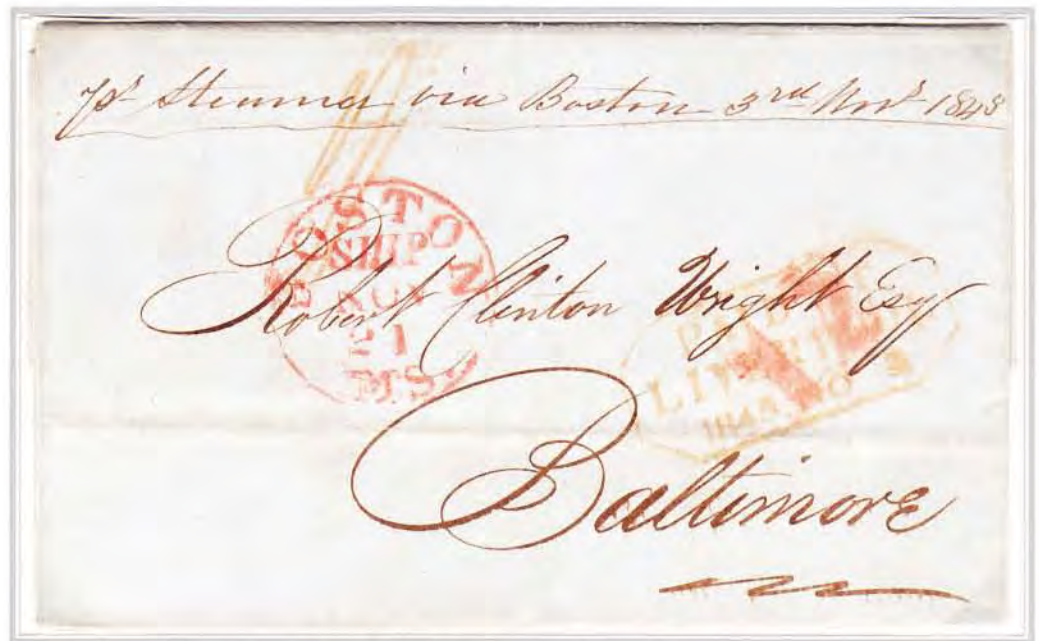 pr Steamer via Boston 3rd Novr 1848
BOSTON
SHIP
NOV
21
MS
Robert Clinton Wright Esq
12
PAID
LIVERPOOL
1848 NO 3
Baltimore